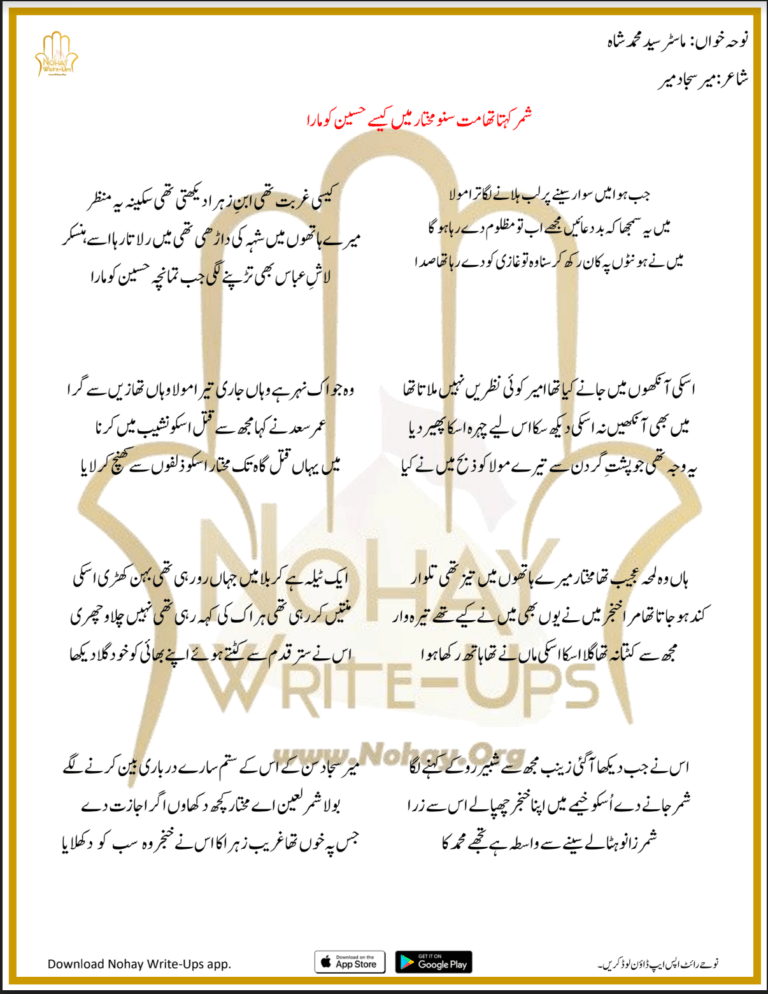 نوحہ خواں: ماسٹر سید محمد شاہ
NOHAY
WRITE-UPS
شاعر: میر سجاد میر
شمر کہتا تھا مت سنو مختار میں کیسے حسین کو مارا
جب ہوا میں سوار سینے پر لب ہلانے لگا ترا مولا
میں یہ سمجھا کہ بد دعائیں مجھے اب تو مظلوم دے رہا ہو گا
میں نے ہونٹوں پہ کان رکھ کر سنا وہ تو غازی کو دے رہا تھا صدا
کیسی غربت تھی ابنِ زہرا دیکھتی تھی سکینہ یہ منظر
میرے ہاتھوں میں شہہ کی داڑھی تھی میں رلاتا رہا اسے ہنسکر
لاشِ عباس بھی تڑپنے لگی جب تمانچہ حسین کو مارا
اسکی آنکھوں میں جانے کیا تھا امیر کوئی نظریں نہیں ملاتا تھا
میں بھی آنکھیں نہ اسکی دیکھ سکا اس لیے چہرہ اسکا پھیر دیا
یہ وجہ تھی جو پشتِ گردن سے تیرے مولا کو ذبح میں نے کیا
وہ جو اک نہر ہے وہاں جاری تیرا مولا وہاں تھا زیں سے گرا
عمر سعد نے کہا مجھ سے قتل اسکو نشیب میں کرنا
میں یہاں قتل گاہ تک مختار اسکو ذلفوں سے کھینچ کر لایا
ہاں وہ لمحہ عجیب تھا مختار میرے ہاتھوں میں تیز تھی تلوار
کند ہو جاتا تھا مرا خنجر میں نے یوں بھی میں نے کیے تھے تیرہ وار
مجھ سے کٹتا نہ تھا گلا اسکا اسکی ماں نے تھا ہاتھ رکھا ہوا
ایک ٹیلہ ہے کربلا میں جہاں رو رہی تھی بہن کھڑی اسکی
منتیں کر رہی تھی ہر اک کی کہہ رہی تھی نہیں چلاو چھری
اس نے ستر قدم سے کٹتے ہوئے اپنے بھائی کو خود گلا دیکھا
اس نے جب دیکھا آ گئی زینب مجھ سے شبیر رو کے کہنے لگا
شمر جانے دے اُسکو خیمے میں اپنا خنجر چھپا لے اس سے زرا
شمر زانو ہٹا لے سینے سے واسطہ ہے تجھے محمد کا
میر سجاد سن کے اس کے ستم سارے درباری بین کرنے لگے
بولا شمر لعین اے مختار کچھ دکھاوں اگر اجازت دے
جس پہ خوں تھا غریب زہرا کا اس نے خنجر وہ سب کو دکھلایا
NOHAY
WRITE-UPS
www.Nohay.Org
Download Nohay Write-Ups app.
Download on the
App Store
GET IT ON
Google Play
نوحے رائٹ اپس ایپ ڈاؤن لوڈ کریں۔